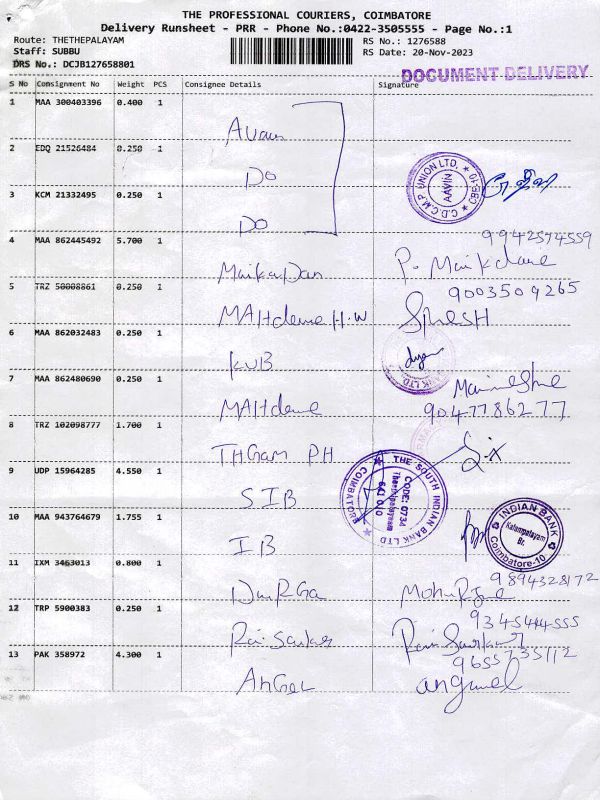 THE PROFESSIONAL COURIERS, COIMBATORE
Delivery Runsheet - PRR - Phone No.:0422-3505555 - Page No.:1
Route: THETHEPALAYAM
RS No.: 1276588
Staff: SUBBU
RS Date: 20-Nov-2023
DRS No.: DCJB127658801
DOCUMENT DELIVERY
S No Consignment No Weight PCS Consignee Details Signature
1 MAA 300403396 0.400 1
2 EDQ 21526484 0.250 1 Do
C.D.C.M.P UNION LTD., AAVIN CBE-10
3 KCM 21332495 0.250 1 Do
4 MAA 862445492 5.700 1 9942574559
5 TRZ 50008861 0.250 1 9003509265
MAHdeve H.W
6 MAA 862032483 0.250 1 KVB
7 MAA 862480690 0.250 1 MAHdeve 9047786277
8 TRZ 102098777 1.700 1 THGam PH
9 UDP 15964285 4.550 1 SIB
THE SOUTH INDIAN BANK LTD COIMBATORE
CODE: 0734
Theethipalayam
641 010
10 MAA 943764679 1.755 1 IB
INDIAN BANK
Kalampalayam
Br.
Coimbatore-10
11 IXM 3463013 0.800 1 DurGa 9894328172
12 TRP 5900383 0.250 1
13 PAK 358972 4.300 1 AnGel angmel